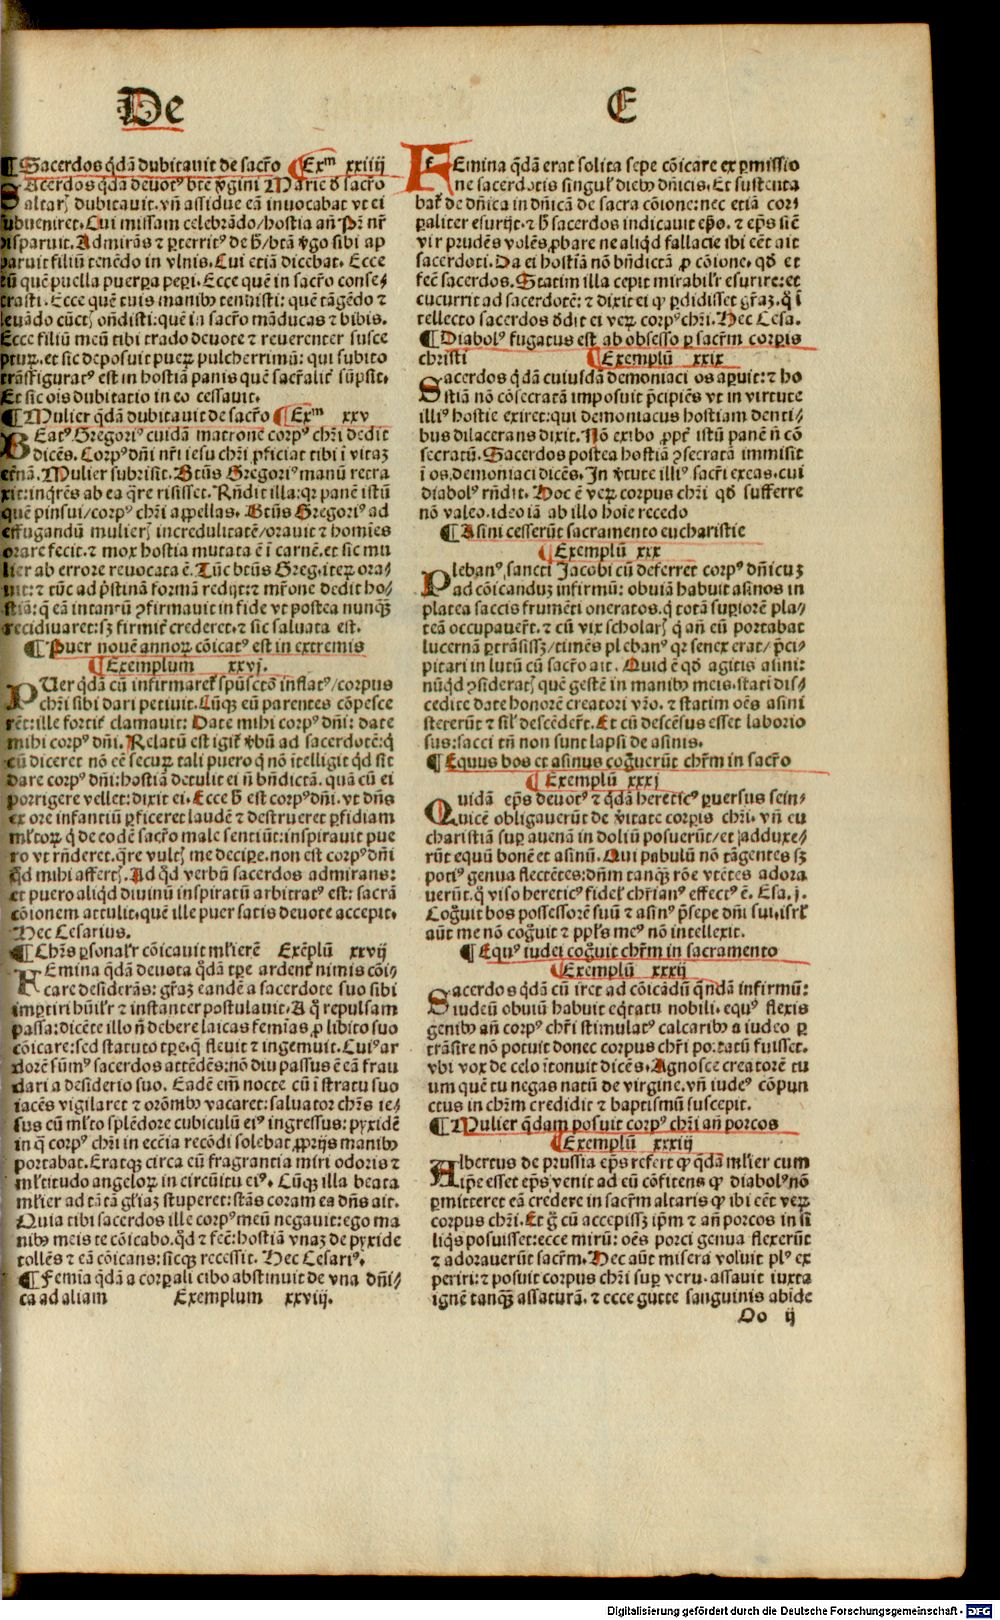 De
E
¶ Sacerdos q̄dā dubitauit de sacr̄o ¶ Exᵐ xxiiij
SAcerdos q̄dā deuotꝰ bt̄e v̄gini Marie d̄ sacr̄o
altarꝭ dubitauit. vn̄ assidue eā inuocabat vt ei
subueniret. Cui missam celebrādo/ hostia an̄ Pr̄ nr̄
disparuit. Admirās ⁊ ꝑterritꝰ de h̄/ btā v̄go sibi ap
paruit filiū tenēdo in vlnis. Cui etiā dicebat. Ecce
eū quē puella puerpa peꝑi. Ecce quē in sacr̄o conse⸗
crasti. Ecce quē tuis manibꝰ tenuisti: quē tāgēdo ⁊
leuādo cūctꝭ on̄disti: quē in sacr̄o māducas ⁊ bibis.
Ecce filiū meū tibi trado deuote ⁊ reuerenter susce
pturꝫ. et sic deposuit pueꝝ pulcherrimū: qui subito
trāsfiguratꝰ est in hostiā panis quē sacr̄alit̄ sūpsit.
Et sic oīs dubitatio in eo cessauit.
¶ Mulier q̄dā dubitauit de sacr̄o ¶ Exᵐ xxv
BEatꝰ Gregoriꝰ cuidā matrone corpꝰ chr̄i dedit
dicēs. Corpꝰ dn̄i nr̄i iesu chr̄i ꝓficiat tibi ī vitaꝫ
et̄nā. Mulier subrisit. Btūs Gregoriꝰ manū retra
xit: inq̄rēs ab ea q̄re risisset. Rn̄dit illa: qꝛ panē istū
quē pinsui/ corpꝰ chr̄i appellas. Btūs Gregoriꝰ ad
effugandū mulierꝭ incredulitatē/ orauit ⁊ homīes
orare fecit. ⁊ mox hostia mutata ē ī carnē. et sic mu
lier ab errore reuocata ē. Tūc btūs Greg. iteꝝ ora⸗
uit: ⁊ tūc ad p̄stinā formā redijt: ⁊ mr̄one dedit ho⸗
stiā: q̄ eā intantū ꝯfirmauit in fide vt postea nunqꝫ̄
recidiuaret: sꝫ firmit̄ crederet. ⁊ sic saluata est.
¶ Puer nouē annoꝝ cōicatꝰ est in extremis
¶ Exemplum xxvj.
PUer q̄dā cū infirmaret̄ spūsctō inflatꝰ/ corpus
chr̄i sibi dari petiuit. Cūqꝫ eū parentes cōpesce
rēt: ille fortit̄ clamauit: Date mihi corpꝰ dn̄i: date
mihi corpꝰ dn̄i. Relatū est igit̄ v̄bū ad sacerdotē: q̄
cū diceret nō eē secuꝝ tali puero q̄ nō itelligit qd̄ sit
dare corpꝰ dn̄i: hostiā detulit ei n̄ bn̄dictā. quā cū ei
porrigere vellet: dixit ei. Ecce h̄ est corpꝰ dn̄i. vt dn̄s
ex ore infantiū ꝑficeret laudē ⁊ destrueret ꝑfidiam
ml̄toꝝ q̄ de eodē sacr̄o male sentiūt: inspirauit pue
ro vt rn̄deret. q̄re vultꝭ me decipe. non est corpꝰ dn̄i
qd̄ mihi affertꝭ. Ad qd̄ verbū sacerdos admirans:
et puero aliqd̄ diuinū inspiratū arbitratꝰ est: sacrā
cōionem attulit. quē ille puer satis deuote accepit.
Hec Cesarius.
¶ Chr̄s ꝑsonalr̄ cōicauit ml̄ierē Exēplū xxvij
FEmina q̄dā deuota q̄dā tꝑe ardent̄ nimis cōi⸗
care desiderās: gr̄aꝫ eandē a sacerdote suo sibi
imptiri hūilr̄ ⁊ instanter postulauit. A q̄ repulsam
passa: dicēte illo n̄ debere laicas femīas ꝓ libito suo
cōicare: sed statuto tꝑe. q̄ fleuit ⁊ ingemuit. Cuiꝰ ar
dorē sūmꝰ sacerdos attēdēs: nō diu passus ē eā frau
dari a desiderio suo. Eadē em̄ nocte cū ī stratu suo
iacēs vigilaret ⁊ orōmbꝰ vacaret: saluator chr̄s ie⸗
sus cū ml̄to splēdore cubiculū eiꝰ ingressus: pyxidē
in q̄ corpꝰ chr̄i in ecc̄ia recōdi solebat ꝓprijs manibꝰ
portabat. Eratqꝫ circa eū fragrantia miri odoris ⁊
ml̄titudo angeloꝝ in circūitu eiꝰ. Cūqꝫ illa beata
ml̄ier ad tātā gl̄iaꝫ stuperet: stās coram ea dn̄s ait.
Quia tibi sacerdos ille corpꝰ meū negauit: ego ma
nibꝰ meis te cōicabo. qd̄ ⁊ fec̄: hostiā vnaꝫ de pyxide
tollēs ⁊ eā cōicans: sicqꝫ recessit. Hec Cesariꝰ.
¶ Femīa q̄dā a corpali cibo abstinuit de vna dn̄i⸗
ca ad aliam Exemplum xxviij.
FEmina q̄dā erat solita sepe cōicare ex ꝑmissio
ne sacerdotis singul̄ diebꝰ dn̄icis. Et sustenta
bat̄ de dn̄ica in dn̄icā de sacra cōione: nec etiā cor⸗
paliter esurijt. ⁊ h̄ sacerdos indicauit ep̄o. ⁊ ep̄s sic̄
vir prudēs volēs ꝓbare ne aliqd̄ fallacie ibi cēt ait
sacerdoti. Da ei hostiā nō bn̄dictā ꝓ cōione. qd̄ et
fec̄ sacerdos. Statim illa cepit mirabilr̄ esurire: et
cucurrit ad sacerdotē: ⁊ dixit ei qꝫ ꝑdidisset gr̄aꝫ. q̄ ī
tellecto sacerdos d̄dit ei veꝝ corpꝰ chr̄i. Hec Cesa.
¶ Diabolꝰ fugatus est ab obsesso ꝑ sacr̄m corpis
christi ¶ Exemplū xxix
Sacerdos q̄dā cuiusdā demoniaci os apuit: ⁊ ho
stiā nō cōsecratā imposuit p̄cipiēs vt in virtute
illiꝰ hostie exiret: qui demoniacus hostiam denti⸗
bus dilacerans dixit. Nō exibo ꝓpt̄ istū panē n̄ cō
secratū. Sacerdos postea hostiā ꝯsecratā immisit
ī os demoniaci dicēs. In v̄tute illiꝰ sacr̄i exeas. cui
diabolꝰ rn̄dit. Hoc ē veꝝ corpus chr̄i qd̄ sufferre
nō valeo. ideo iā ab illo hoīe recedo
¶ Asini cesserūt sacramento eucharistie
¶ Exemplū xxx
Plebanꝰ sancti Jacobi cū deferret corpꝰ dn̄icuꝫ
ad cōicanduꝫ infirmū: obuiā habuit asinos in
platea saccis frumēti oneratos. q̄ totā supiorē pla⸗
teā occupauer̄t. ⁊ cū vix scholarꝭ q̄ an̄ eū portabat
lucernā ꝑtrāsissꝫ/ timēs plebanꝰ qꝛ senex erat/ p̄ci⸗
pitari in lutū cū sacr̄o ait. Quid ē qd̄ agitis asini:
nūqd̄ ꝯsideratꝭ quē gestē in manibꝰ meis. stati dis⸗
cedite date honorē creatori vr̄o. ⁊ statim oēs asini
steterūt ⁊ sil̄ descēder̄t. Et cū descēsus esset laborio
sus: sacci tn̄ non sunt lapsi de asinis.
¶ Equus bos et asinus cog̃uerūt chr̄m in sacr̄o
¶ Exemplū xxxj
Quidā ep̄s deuotꝰ ⁊ q̄dā hereticꝰ ꝑuersus sein⸗
uicē obligauerūt de v̄itate corpis chr̄i. vn̄ eu
charistiā sup auenā in doliū posuerūt/ et adduxe⸗
rūt equū bouē et asinū. Qui pabulū nō tāgentes sꝫ
potiꝰ genua flectētes: dn̄m tanqꝫ rōe vtētes adora
uerūt. q̄ viso hereticꝰ fidel̄ chr̄ianꝰ effectꝰ ē. Esa. j.
Cog̃uit bos possessorē suū ⁊ asinꝰ p̄sepe dn̄i sui. isrl̄
aūt me nō cog̃uit ⁊ ppl̄s meꝰ nō intellexit.
¶ Equꝰ iudei cog̃uit chr̄m in sacramento
¶ Exemplū xxxij
Sacerdos q̄dā cū iret ad cōicādū q̄ndā infirmū:
iudeū obuiū habuit eq̄tatu nobili. equꝰ flexis
genibꝰ an̄ corpꝰ chr̄i stimulatꝰ calcaribꝰ a iudeo ꝑ
trāsire nō potuit donec corpus chr̄i portatū fuisset.
vbi vox de celo ītonuit dicēs. Agnosce creatorē tu
um quē tu negas natū de virgine. vn̄ iudeꝰ cōpun
ctus in chr̄m credidit ⁊ baptismū suscepit.
¶ Mulier q̄dam posuit corpꝰ chr̄i an̄ porcos
¶ Exemplū xxxiij
Albertus de prussia ep̄s refert qꝫ q̄dā ml̄ier cum
ip̄e esset ep̄s venit ad eū cōfitens qꝫ diabolꝰ nō
ꝑmitteret eā credere in sacr̄m altaris qꝫ ibi eēt veꝝ
corpus chr̄i. Et g̃ cū accepissꝫ ip̄m ⁊ an̄ porcos in si
liq̄s posuisset: ecce mirū: oēs porci genua flexerūt
⁊ adorauerūt sacr̄m. Hec aūt misera voluit plꝰ ex
periri: ⁊ posuit corpus chr̄i sup veru. assauit iuxta
ignē tanqꝫ assaturā. ⁊ ecce gutte sanguinis abide
Oo ij
Digitalisierung gefördert durch die Deutsche Forschungsgemeinschaft - DFG